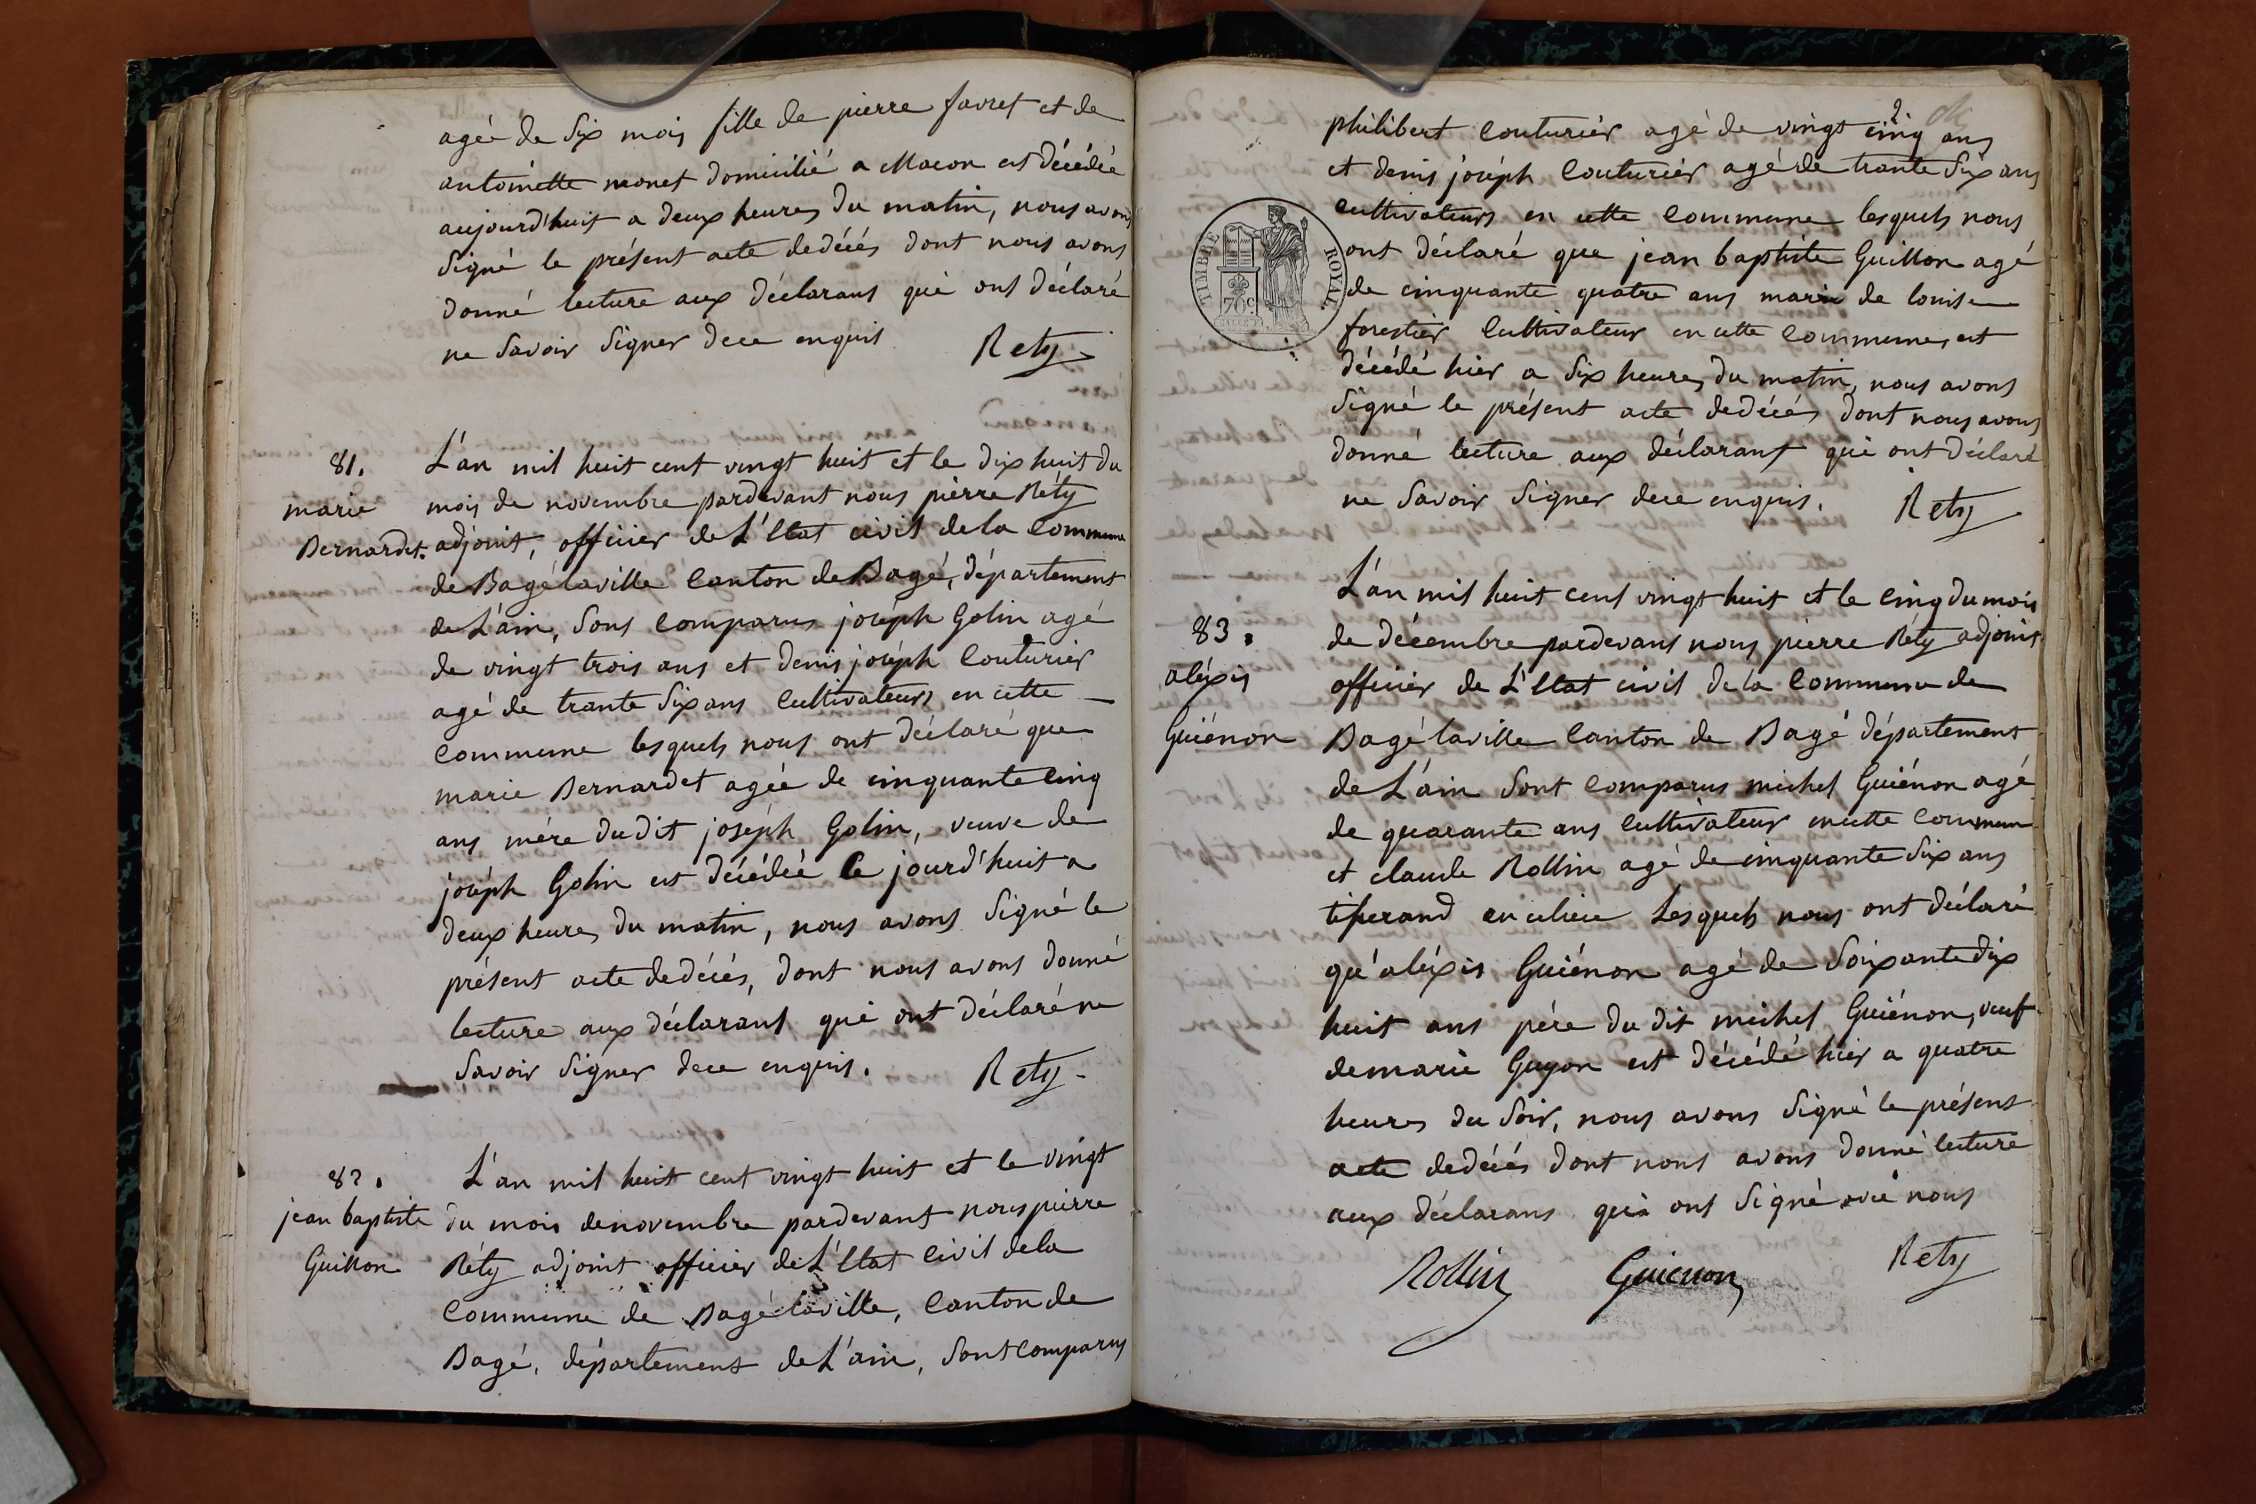 agée de Six mois fille de pierre favret et de
antoinette monet domicilié a Macon est décédée
aujourd'huit a deux heures du matin, nous avons
Signé le présent acte dedécés dont nous avons
donné lecture aux déclarans qui ont déclaré
ne Savoir Signer dece enquis
Rety
81.
marie
Bernardet.
L'an mil huit cent vingt huit et le dix huit du
mois de novembre pardevant nous pierre Réty
adjoint, officier de L'Etat civil dela Commune
de Bagé laville Canton de Bagé, département
de L'ain, Sont comparus joséph Golin agé
de vingt trois ans et denis joséph Couturier
agé de trante Six ans Cultivateurs en cette
Commune lesquels nous ont déclaré que
marie Bernardet agée de cinquante Cinq
ans mére dudit joséph Golin, veuve de
joséph Golin est décédée Ce jourd'huit a
deux heures du matin, nous avons Signé le
présent acte dedécés, dont nous avons donné
lecture aux déclarans qui ont déclaré ne
Savoir Signer dece enquis.
Rety
82.
jean baptiste
Guillon
L'an mil huit cent vingt huit et le vingt
du mois denovembre pardevant nous pierre
Réty adjoint officier de L'Etat Civil dela
Commune de Bagé laville, Canton de
Bagé, département de L'ain, Sont comparus
2
philibert Couturier agé de vingt cinq ans
et denis joséph Couturier agé de trante Six ans
cultivateurs en cette Commune lesquels nous
ont déclaré que jean baptiste Guillon agé
de cinquante quatre ans mari de louise
forestier Cultivateur en cette Commune, est
décédé hier a Six heures du matin, nous avons
Signé le présent acte dedécés dont nous avons
donné lecture aux déclarans qui ont déclaré
ne Savoir Signer dece enquis.
Rety
TIMBRE ROYAL
70 c
83.
aléxis
Guiénon
L'an mil huit cent vingt huit et le Cinq du mois
de décembre pardevant nous pierre Réty adjoint
officier de L'Etat civil dela Commune de
Bagé laville Canton de Bagé département
de L'ain Sont Comparus michel Guiénon agé
de quarante ans Cultivateur en cette Commune
et claude Rollin agé de cinquante Six ans
tiserand en celieu Lesquels nous ont déclaré
qu'aléxis Guiénon agé de Soixante dix
huit ans pére du dit michel Guiénon, veuf
demarie Guyon est décédé hier a quatre
heures du Soir, nous avons Signé le présent
acte dedécés dont nous avons donné lecture
aux déclarans qui ont Signé avec nous
Rollin Guienon Rety